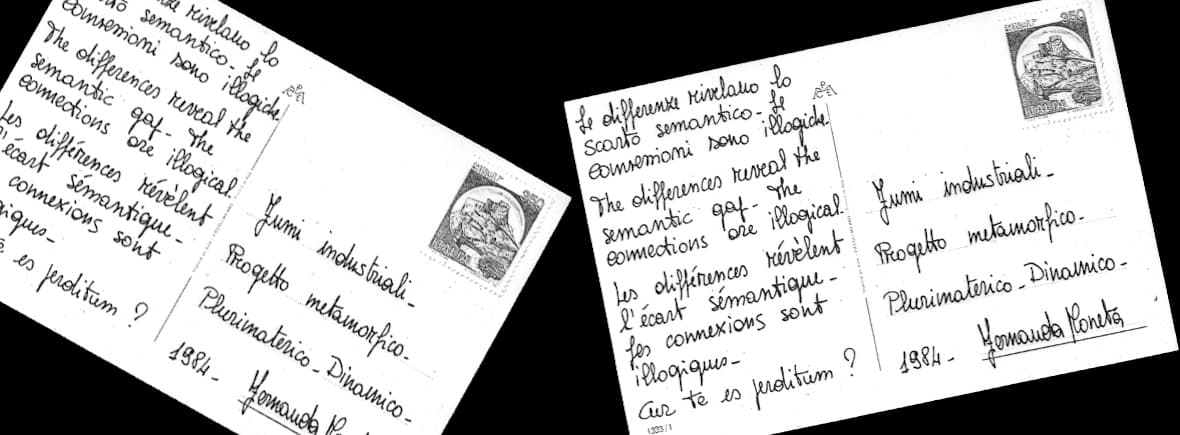 rivelano lo
semantico - Le
connessioni sono illogiche.
The differences reveal the
semantic gap - The
connections are illogical
Les différences révèlent
l'écart sémantique -
connexions sont
es perditum ?
Fumi industriali -
Progetto metamorfico -
Plurimaterico - Dinamico -
1984 - Fernanda
350
Le differenze rivelano lo
scarto semantico - Le
connessioni sono illogiche.
The differences reveal the
semantic gap - The
connections are illogical.
Les différences révèlent
l'écart sémantique -
Les connexions sont
illogiques -
Cur te es perditum ?
1333/1
350
Fumi industriali -
Progetto metamorfico -
Plurimaterico - Dinamico -
1984 - Fernanda Moneta